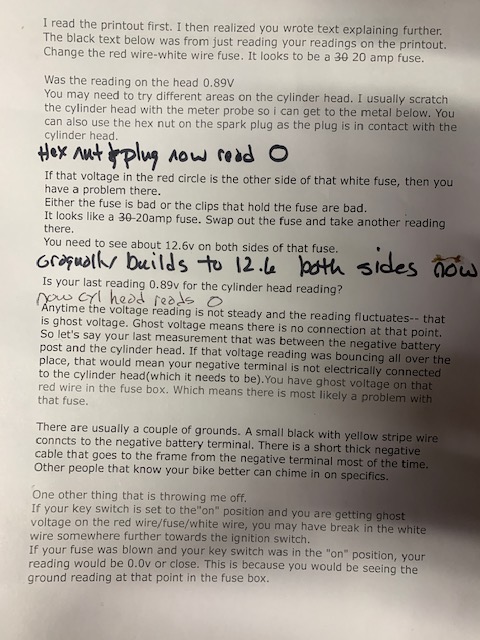 I read the printout first. I then realized you wrote text explaining further.
The black text below was from just reading your readings on the printout.
Change the red wire-white wire fuse. It looks to be a 30 20 amp fuse.
Was the reading on the head 0.89V
You may need to try different areas on the cylinder head. I usually scratch
the cylinder head with the meter probe so i can get to the metal below. You
can also use the hex nut on the spark plug as the plug is in contact with the
cylinder head.
Hex nut & plug now read 0
If that voltage in the red circle is the other side of that white fuse, then you
have a problem there.
Either the fuse is bad or the clips that hold the fuse are bad.
It looks like a 30-20amp fuse. Swap out the fuse and take another reading
there.
You need to see about 12.6v on both sides of that fuse.
Gragually builds to 12.6 both sides now
Is your last reading 0.89v for the cylinder head reading?
now cyl head reads 0
Anytime the voltage reading is not steady and the reading fluctuates-- that
is ghost voltage. Ghost voltage means there is no connection at that point.
So let's say your last measurement that was between the negative battery
post and the cylinder head. If that voltage reading was bouncing all over the
place, that would mean your negative terminal is not electrically connected
to the cylinder head(which it needs to be).You have ghost voltage on that
red wire in the fuse box. Which means there is most likely a problem with
that fuse.
There are usually a couple of grounds. A small black with yellow stripe wire
conncts to the negative battery terminal. There is a short thick negative
cable that goes to the frame from the negative terminal most of the time.
Other people that know your bike better can chime in on specifics.
One other thing that is throwing me off.
If your key switch is set to the"on" position and you are getting ghost
voltage on the red wire/fuse/white wire, you may have break in the white
wire somewhere further towards the ignition switch.
If your fuse was blown and your key switch was in the "on" position, your
reading would be 0.0v or close. This is because you would be seeing the
ground reading at that point in the fuse box.